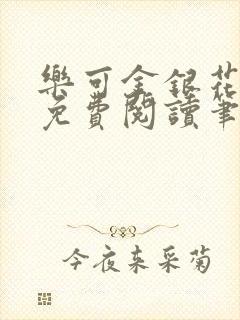 樂可金銀花
免費閱讀筆
今夜来采菊